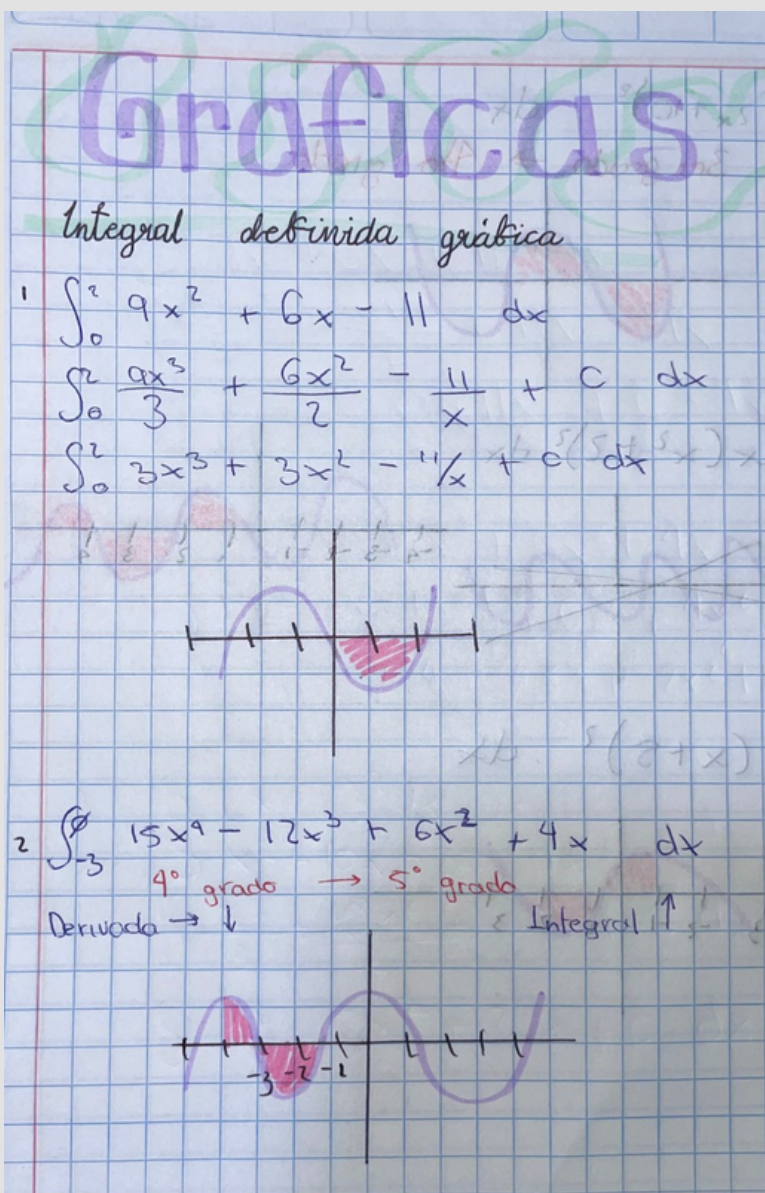 Graficas
Integral definida gráfica
1 ∫₀² 9x² + 6x - 11 dx
∫₀² 9x³/3 + 6x²/2 - 11/x + C dx
∫₀² 3x³ + 3x² - 11/x + C dx
2 ∫₋₃^0 15x⁴ - 12x³ + 6x² + 4x dx
4° grado → 5° grado
Derivada → ↓ Integral ↑
-3 -2 -1